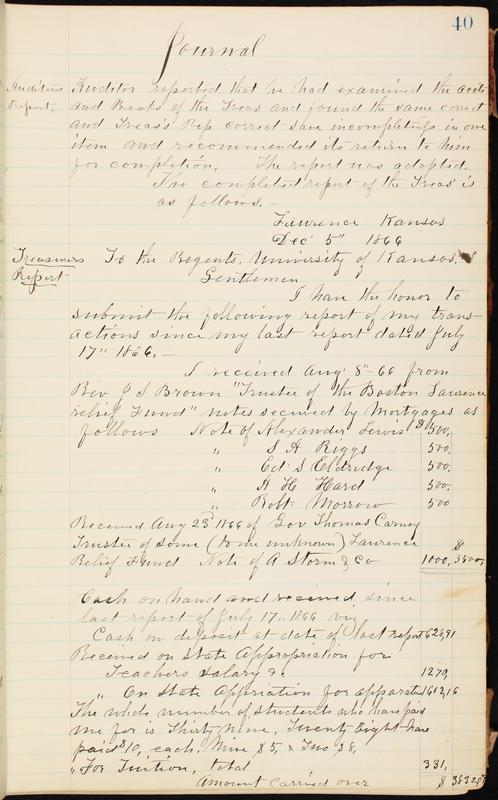 40
Journal
Auditors Report.
Auditor reported that he had examined the accts
and Books of the Treas and found the same correct
and Treas's Rep correct save incompleteness in one
item and recommended its return to him
for completion. The report was adopted.
The completed report of the Treas' is
as follows.—
Lawrence Kansas
Dec 5" 1866
Treasurers Report
To the Regents, University of Kansas,
Gentlemen
I have the honor to
submit the following report of my trans-
actions since my last report dated July
17" 1866.—
I received Aug' 8"-66 from
Rev J S Brown "Trustee of the Boston Lawrence
relief Fund" notes secured by Mortgages as
follows Note of Alexander Lewis $ 500,
" S A Riggs 500,
" Ed S Eldridge 500,
" A H Hard 500,
" Robt Morrow 500
Received Aug 23d 1866 of Gov Thomas Carney
Trustee of some (to me unknown) Lawrence $
Relief Fund Note of A Storm & Co 1000, 3500,
Cash on hand and received since
last report of July 17" 1866 viz
Cash on deposit at date of last report 626,91
Received on State Appropriation for
Teachers salary &c 1270,
" On State Appriation for apparatus 1602,16
The whole number of students who have paid
me for is Thirty Nine, Twenty Eight have
paid $10, each, Nine $5, & Two $8,
" For Tuition, total 331,
Amount carried over $